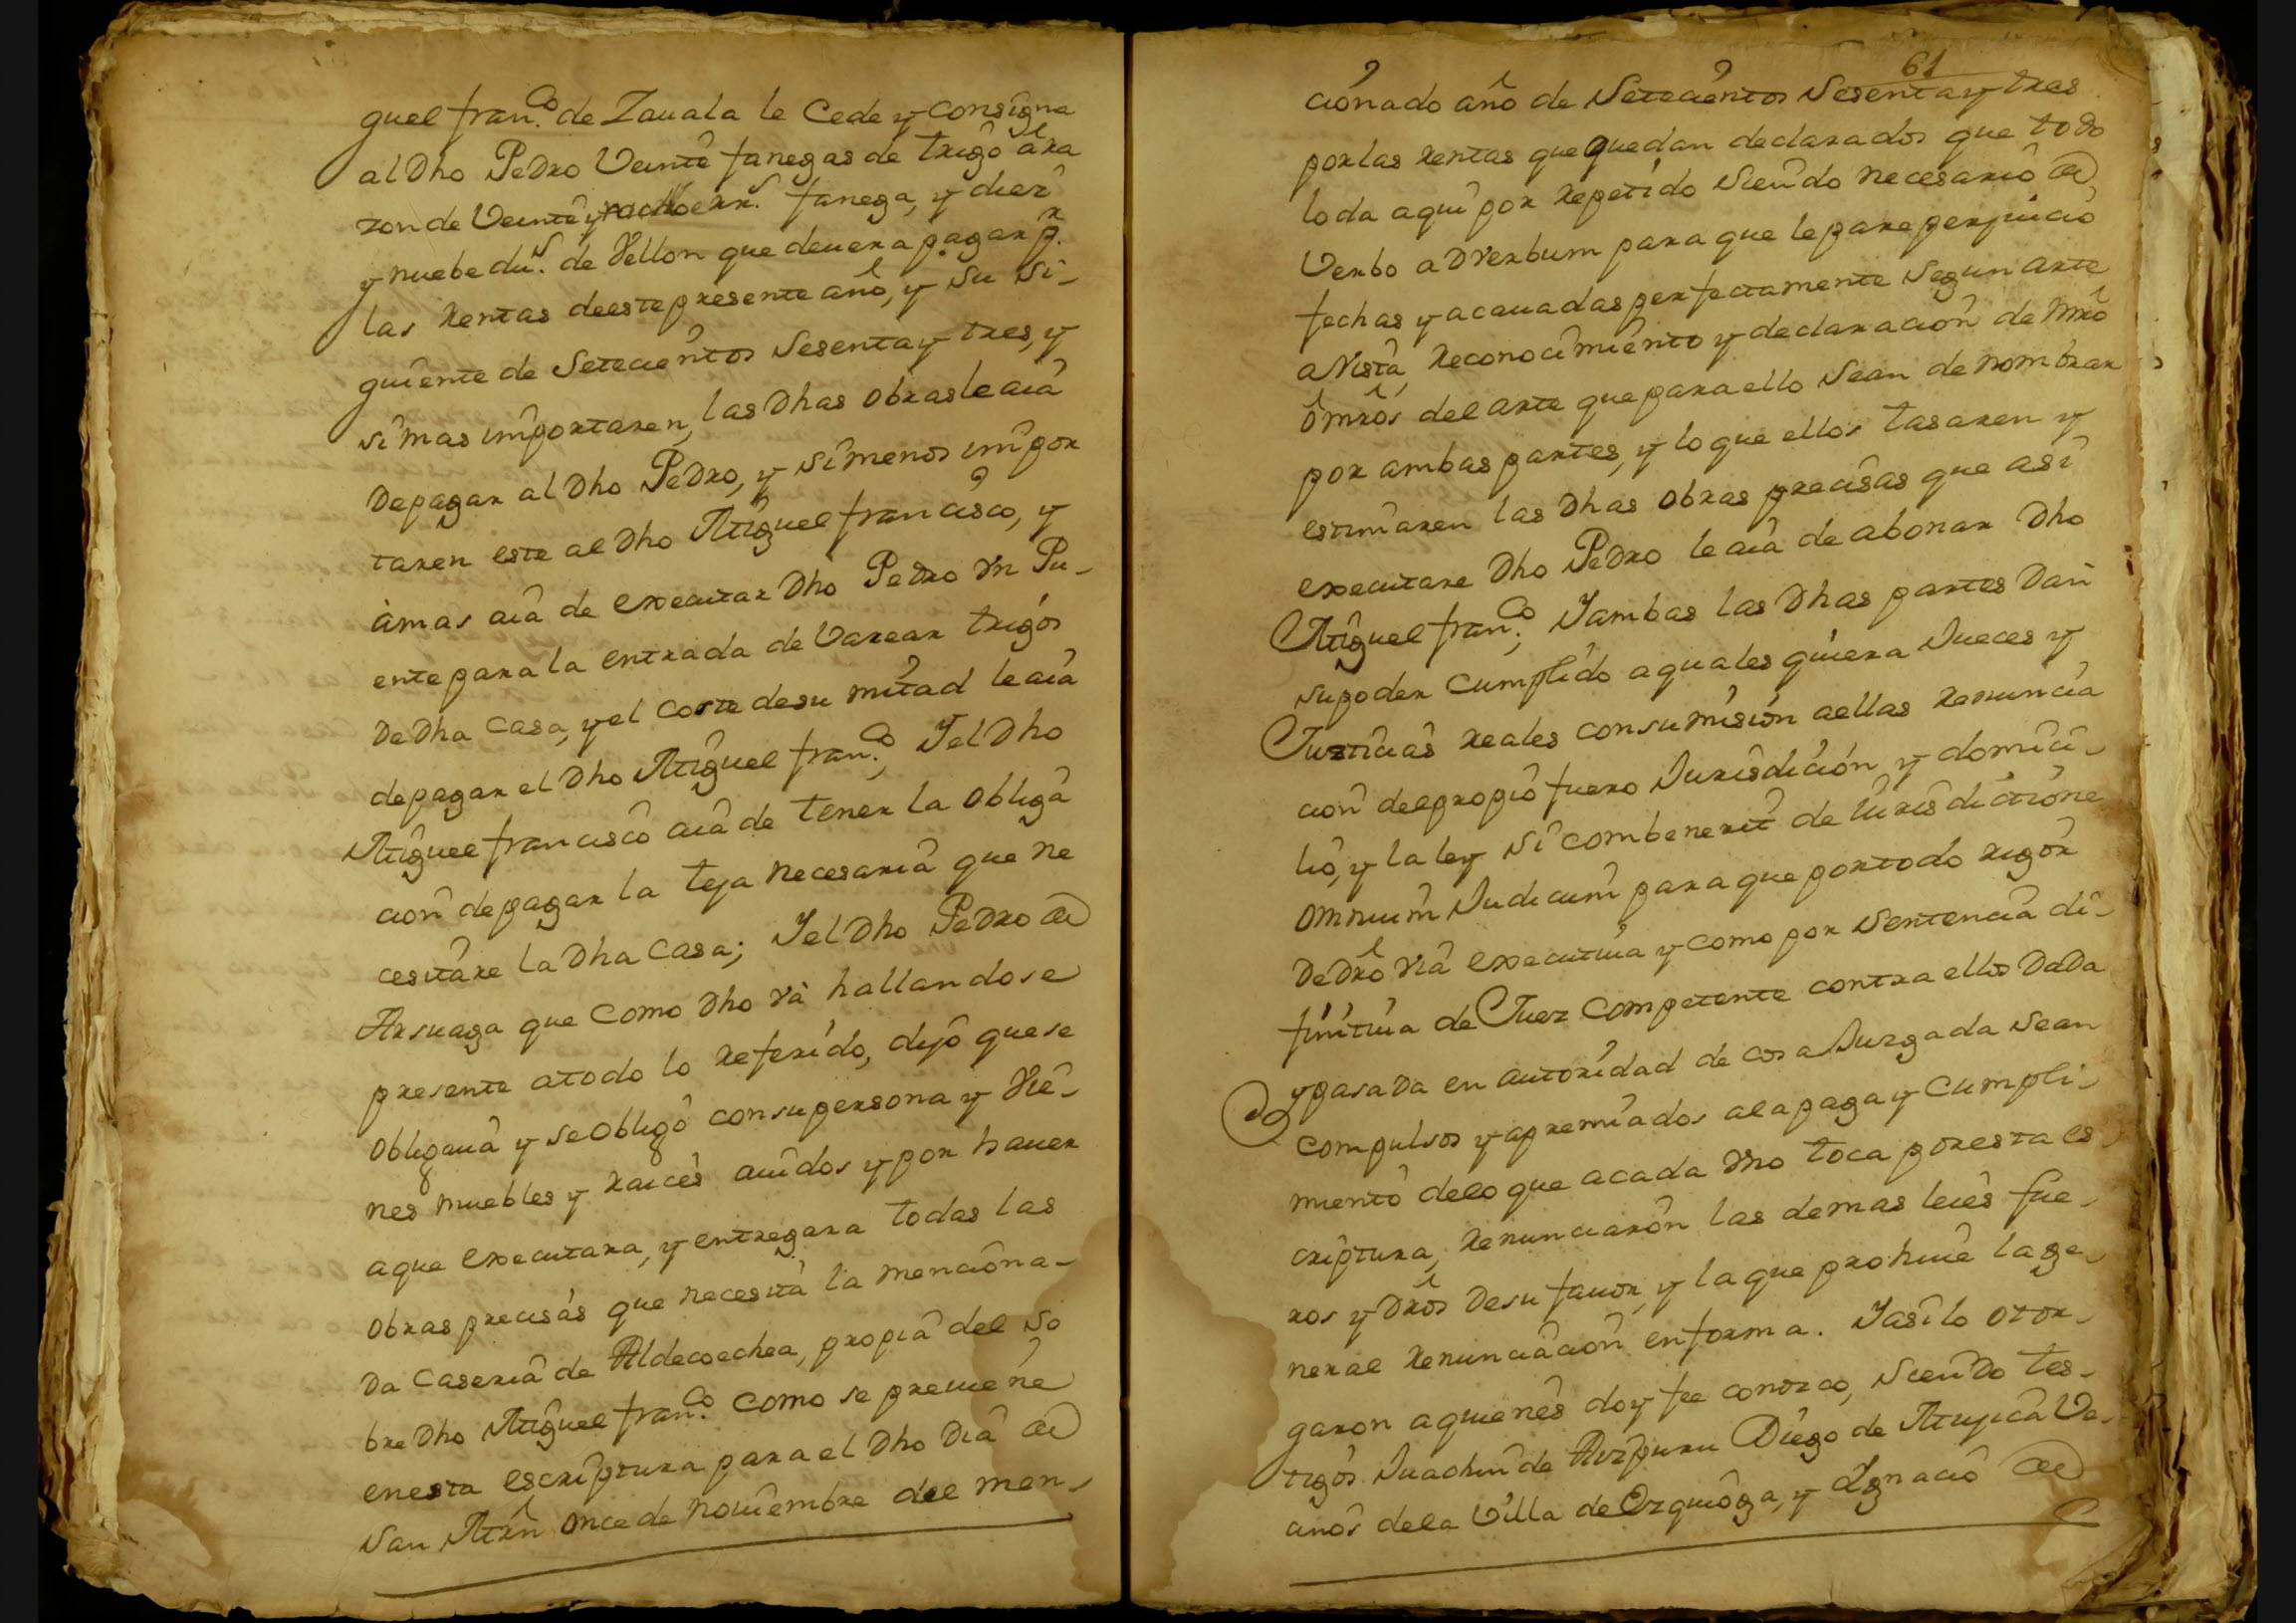 guel fran.co de Zauala le Cede y consigna
al Dho Pedro Veinte fanegas de trigo â ra
zon de Veinte y ocho rr.s fanega, y diez
y nuebe du.s de Vellon que deuera pagar p.r
las rentas de este presente año, y su si-
guiente de Setecientos Sesenta y tres, y
si mas importaren, las Dhas obras le aiâ
De pagar al Dho Pedro, y si menos impor
taren este al Dho Miguel francisco, y
àmas aiâ de executar Dho Pedro Vn Pu-
ente para la entrada de Varear trigos
De Dha Casa, y el coste de su mitad le aiâ
de pagar el Dho Miguel fran.co, Y el Dho
Miguel francisco aiâ de tener la obliga
cion de pagar la teja necesaria que ne
cesitâre la Dha Casa; Y el Dho Pedro de
Arsuaga que como Dho và hallandose
presente a todo lo referido, dijô que se
obligauâ y se obligô con su persona y Vie-
nes muebles y raices auidos y por hauer
a que executara, y entregara todas las
obras precisas que necesita la menciona-
Da Caseriâ de Aldecoechea, propia del so
bre Dho Miguel fran.co como se preuiene
en esta escriptura para el Dho Dia de
San Mrñ once de Nouiembre del men-
61
cionado año de Setecientos Sesenta y tres
por las rentas que quedan declarados que todo
lo da aqui por repetido siendo necesario de
Verbo adverbum para que le pare perjuicio
fechas y acauadas perfectamente segun arte
a Vista, reconocimiento y declaracion de Mrô
ô mrôs del arte que para ello sean de nombrar
por ambas partes, y lo que ellos tasaren y
estimaren las Dhas obras precisas que asi
executare Dho Pedro le aiâ de abonar Dho
Miguel fran.co, Y ambas las Dhas partes Dan
su poder cumplido a quales quiera Jueces y
Justicias reales con sumision a ellas renuncia
cion del propio fuero Jurisdicion y domici-
lio, y la ley si combenerit de Iurisdictione
omnium Judicum para que por todo rigor
De Drô via executiua y como por sentencia di-
finitiua de Juez competente contra ellos Dada
y pasada en autoridad de cosa Juzgada sean
compulsos y apremiados a la paga y cumpli-
miento de lo que a cada Vno toca por esta es-
criptura, renunciarôn las demas leies fue-
ros y Drôs De su fauor, y la que prohiue la ge-
neral renunciacion en forma. Y asi lo otor-
garon a quienes doy fee conozco, siendo tes-
tigos Juachin de Aizpuru Diego de Mujica Ve-
cinos de la Villa de Ezquioga, y Ignacio de